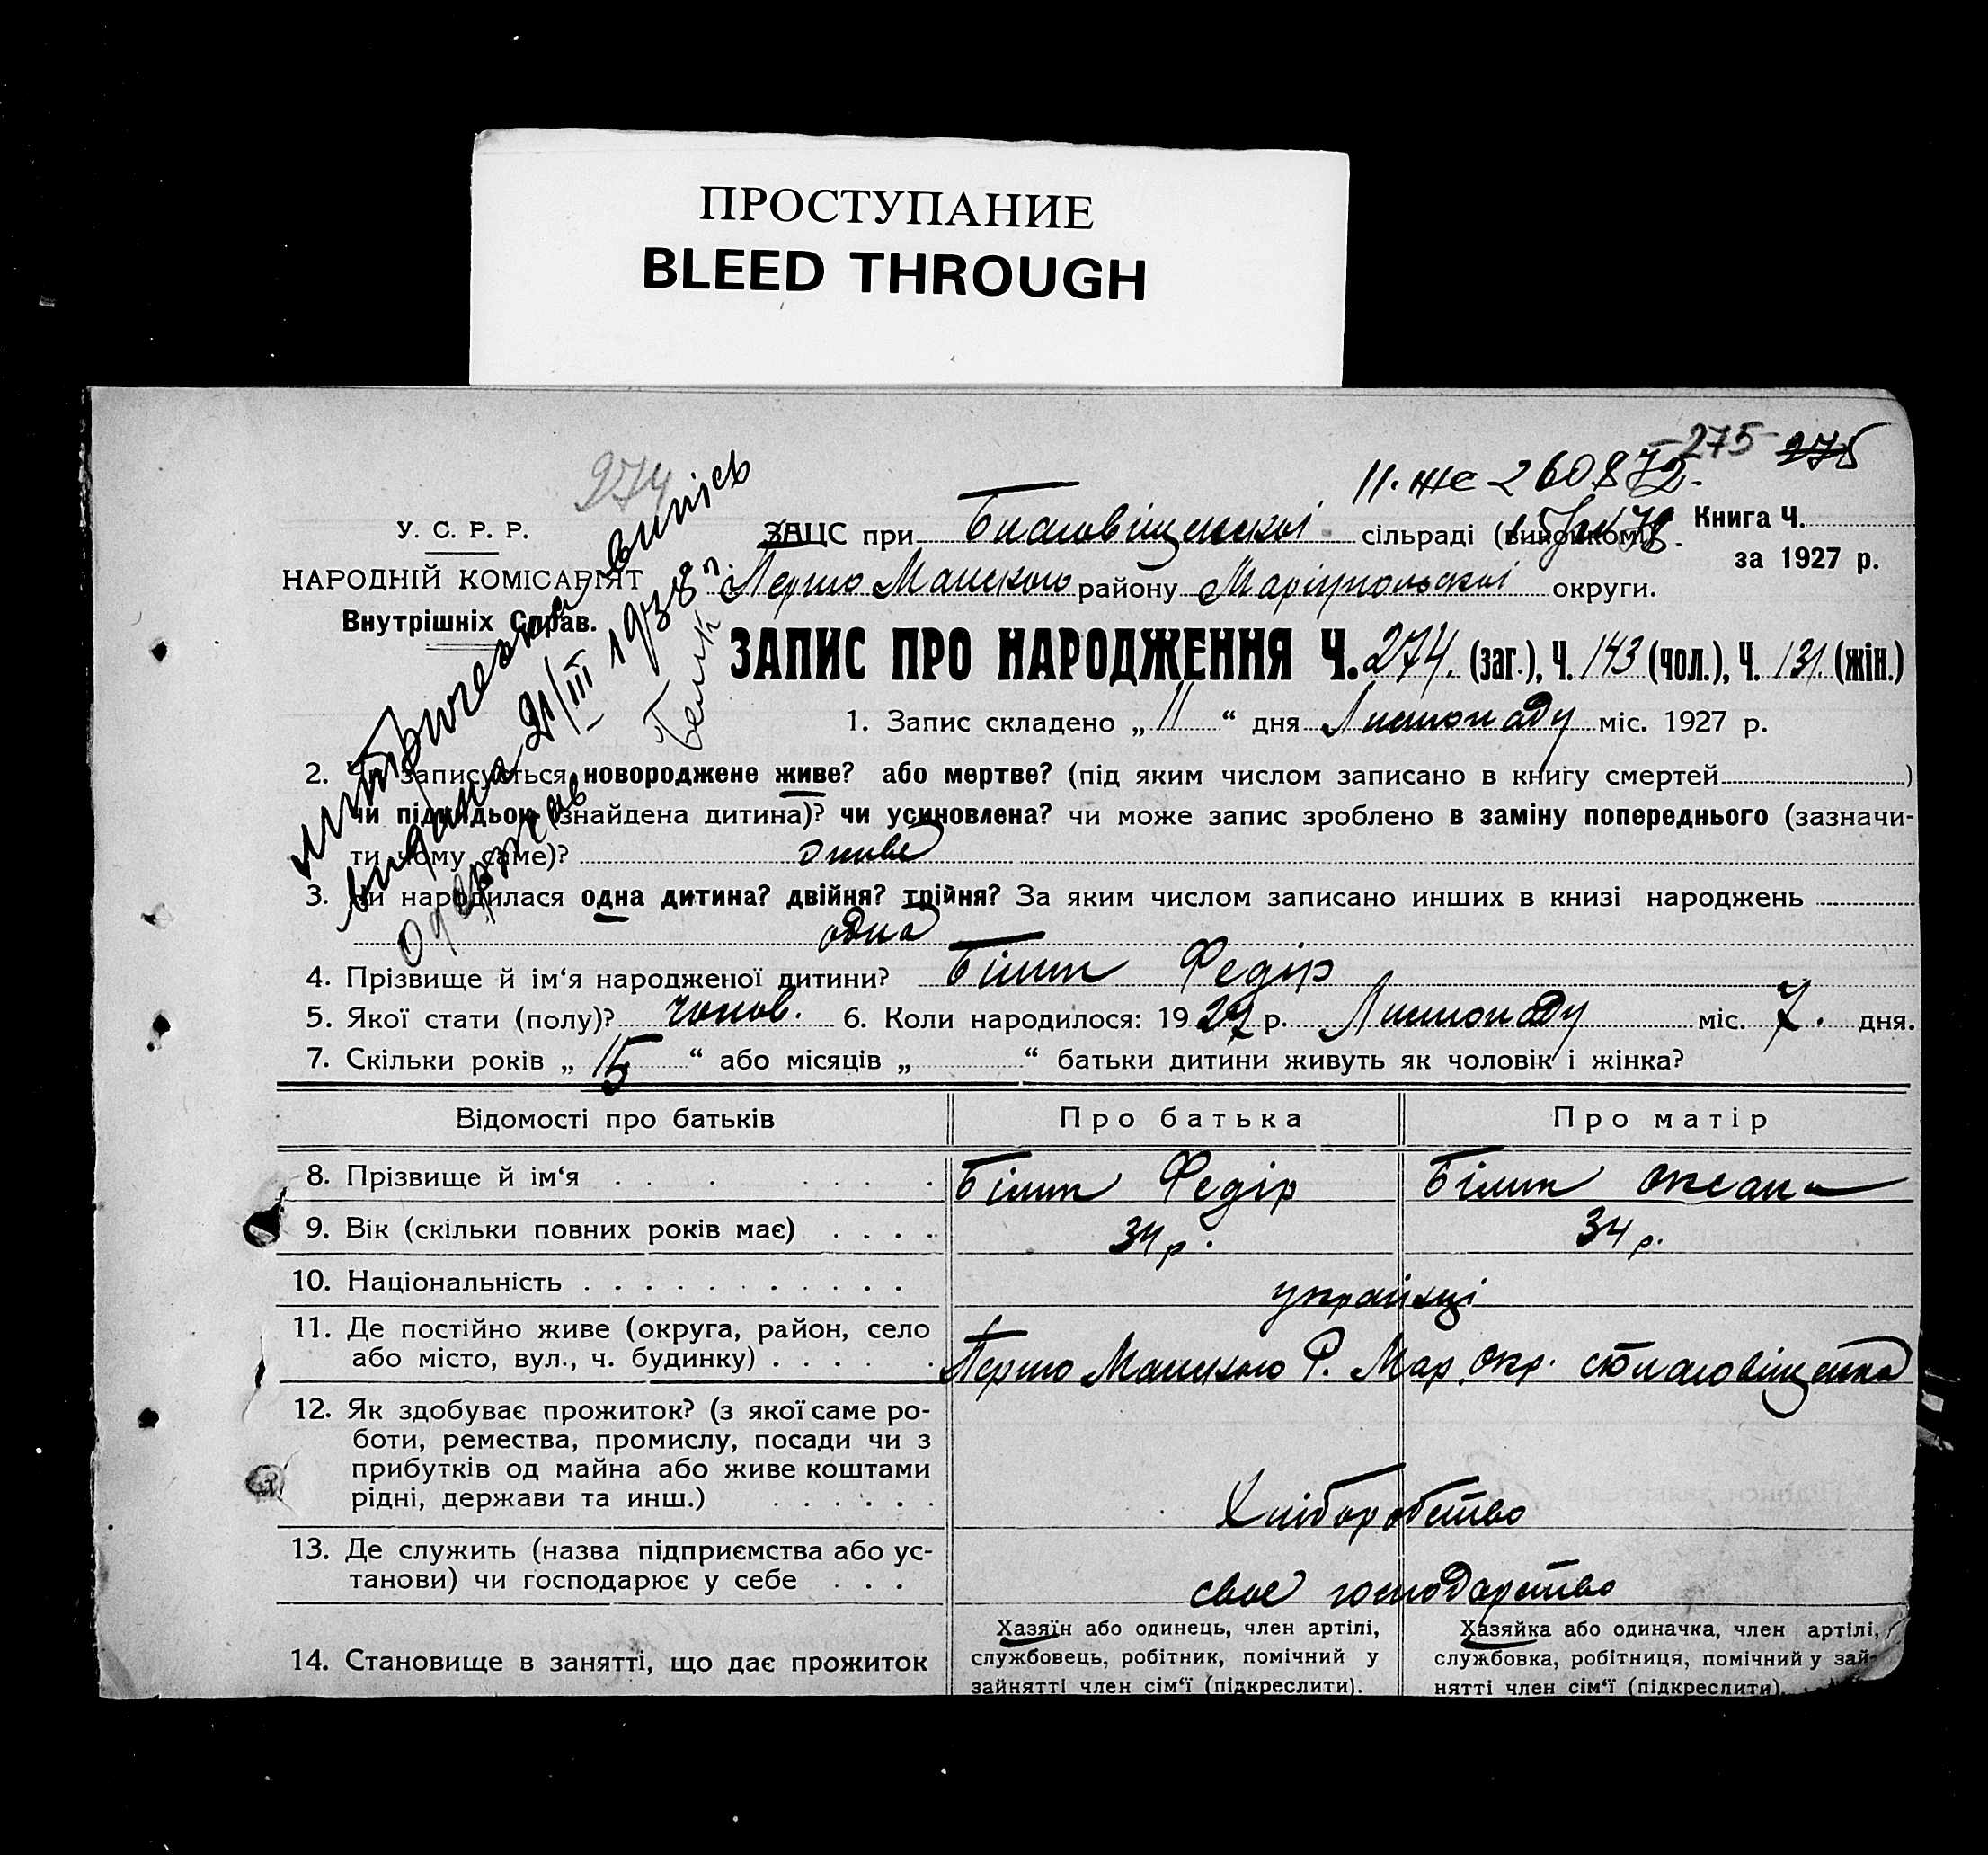 ПРОСТУПАНИЕ
BLEED THROUGH
275 275
274
II-ЖС 260872
У. С. Р. Р.
НАРОДНІЙ КОМІСАРІЯТ
Внутрішніх Справ.
метрична випись
видана 21/III 1938 р.
одержав
ЗАЦС при Благовіщенскої сільраді (виконкомі)
Книга Ч.
за 1927 р.
Першо Майського району Маріупольскої округи.
ЗАПИС ПРО НАРОДЖЕННЯ Ч. 274. (заг.), Ч. 143 (чол.), Ч. 131. (жін.)
1. Запис складено „ 11 “ дня Листопаду міс. 1927 р.
2. Чи записується новороджене живе? або мертве? (під яким числом записано в книгу смертей )
чи підкидьою (знайдена дитина)? чи усиновлена? чи може запис зроблено в заміну попереднього (зазначи-
ти чому саме)? живе
3. Чи народилася одна дитина? двійня? трійня? За яким числом записано инших в книзі народжень
одна
4. Прізвище й ім‘я народженої дитини? Білит Федір
5. Якої стати (полу)? чолов. 6. Коли народилося: 1927 р. Листопаду міс. 7. дня.
7. Скільки років „ 15 “ або місяців „ “ батьки дитини живуть як чоловік і жінка?
Відомості про батьків Про батька Про матір
8. Прізвище й ім‘я Білит Федір Білит Оксана
9. Вік (скільки повних років має) 34 р. 34 р.
10. Національність українці
11. Де постійно живе (округа, район, село
або місто, вул., ч. будинку) Першо Майського Р. Мар. окр. с Благовіщенка
12. Як здобуває прожиток? (з якої саме ро-
боти, ремества, промислу, посади чи з
прибутків од майна або живе коштами
рідні, держави та инш.) Хліборобство
13. Де служить (назва підприємства або ус-
танови) чи господарює у себе своє господарство
14. Становище в занятті, що дає прожиток
Хазяїн або одинець, член артілі,
службовець, робітник, помічний у
зайнятті член сім‘ї (підкреслити).
Хазяйка або одиначка, член артілі,
службовка, робітниця, помічний у зай-
нятті член сім‘ї (підкреслити).